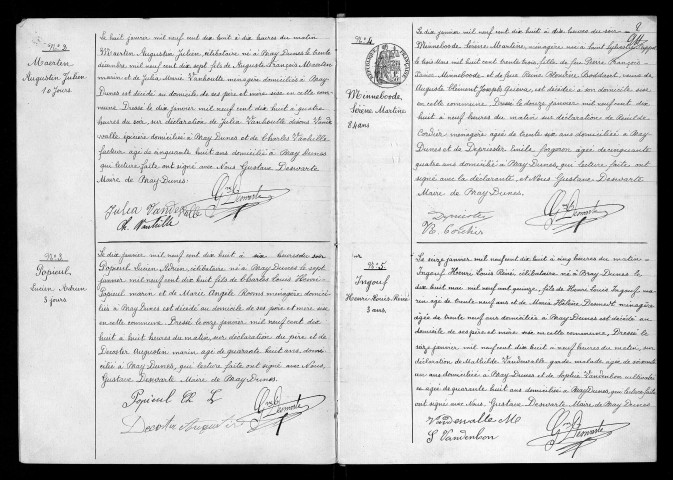 N° 2
Maerten
Augustin Julien
10 jours
Le huit janvier mil neuf cent dix huit à dix heures du matin
Maerten Augustin Julien, célibataire né à Bray Dunes le trente
décembre mil neuf cent dix sept fils de Auguste François Maerten
marin et de Julia Marie Vanhoutte ménagère domiciliés à Bray
Dunes est décédé au domicile de ses père et mère sise en cette com-
mune. Dressé le dix janvier mil neuf cent dix huit à quatre
heures du soir, sur déclaration de Julia Vanhoutte Vande
valle épicière domiciliée à Bray Dunes et de Charles Vanhille
facteur agé de cinquante huit ans domicilié à Bray Dunes
qui lecture faite ont signé avec Nous Gustave Deswarte
Maire de Bray Dunes.
Julia Vandevalle
Ch. Vanhille
G. Deswarte
N° 3
Popieul,
Lucien Adrien
3 jours
Le dix janvier mil neuf cent dix huit à dix heures du soir
Popieul Lucien Adrien, célibataire né à Bray Dunes le sept
janvier mil neuf cent dix huit fils de Charles Louis Henri
Popieul marin et de Marie Angèle Rooms ménagère domici-
liés à Bray Dunes est décédé au domicile de ses père et mère sise
en cette commune. Dressé le onze janvier mil neuf cent dix
huit à huit heures du matin, sur déclaration du père et de
Decoster Augustin marin agé de quarante huit ans, domi-
cilié à Bray Dunes, qui lecture faite ont signé avec Nous,
Gustave Deswarte Maire de Bray Dunes.
Popieul Ch
Decoster Augustin
G. Deswarte
N° 4
Minneboode,
Sérène Martine
84 ans
Le dix janvier mil neuf cent dix huit à dix heures du soir
Minneboode Sérène Martine, ménagère née à Saint Sylvestre Cappel
le trois mil huit cent trente trois, fille de feu Pierre François
Minneboode et de feue Reine Boddaert, veuve de
Auguste Clément Joseph est décédée à son domicile sise
en cette commune. Dressé le douze janvier mil neuf cent dix
huit à neuf heures du matin sur déclaration de
Cordier ménagère agée de trente six ans domiciliée à Bray
Dunes et de Depriester Emile forgeron agé de cinquante
quatre ans domicilié à Bray Dunes, qui lecture faite ont
signé avec la déclarante, et Nous Gustave Deswarte
Maire de Bray Dunes.
Depriester
Cordier
G. Deswarte
N° 5
Ingouf
Henri Louis René
3 ans
Le seize janvier mil neuf cent dix huit à cinq heures du matin
Ingouf Henri Louis René célibataire, né à Bray Dunes le
dix huit mai mil neuf cent quinze, fils de Henri Louis Ingouf, ma-
rin agé de trente neuf ans et de Marie Hélène ménagère
agée de trente neuf ans domiciliés à Bray Dunes est décédé au
domicile de ses père et mère sise en cette commune. Dressé le
seize janvier mil neuf cent dix huit à neuf heures du matin, sur
déclaration de Mathilde Vandewalle garde malade agée de soixante
ans domiciliée à Bray Dunes et de Sophie Vandenbon cultivatri-
ce agée de quarante huit ans domiciliée à Bray Dunes, qui lecture faite
ont signé avec Nous, Gustave Deswarte Maire de Bray Dunes
Vandewalle M
S Vandenbon
G. Deswarte